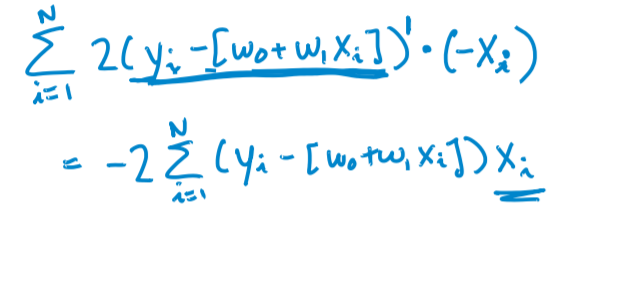 \sum_{i=1}^{N} 2(y_i - [w_0 + w_1 x_i])^1 \cdot (-x_i)
= -2 \sum_{i=1}^{N} (y_i - [w_0 + w_1 x_i]) x_i